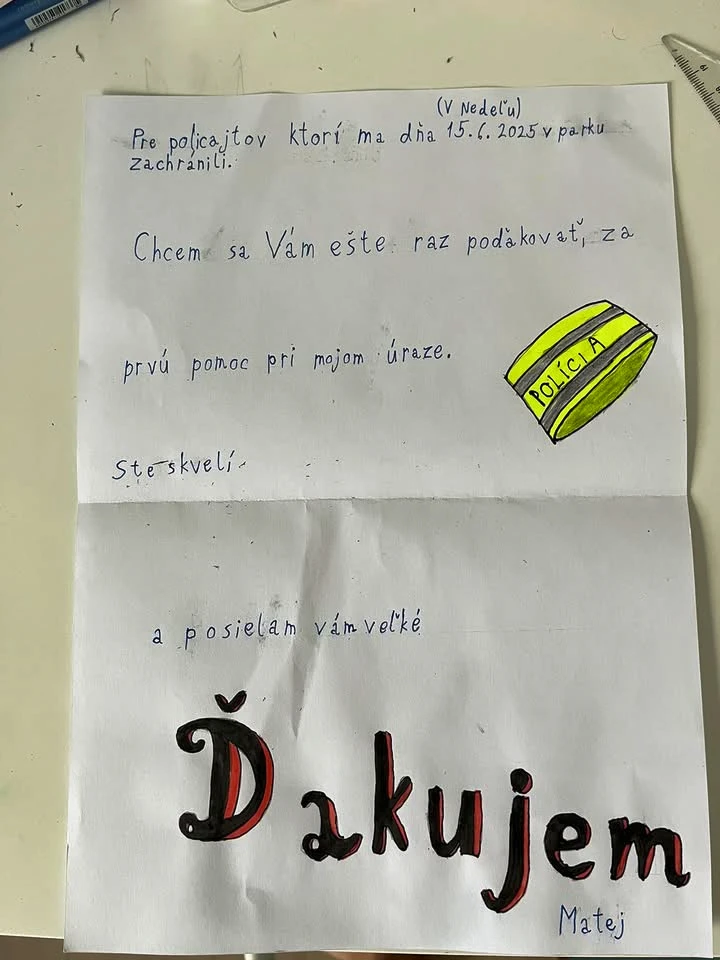 (V Nedeľu)
Pre policajtov ktorí ma dňa 15.6.2025 v parku
zachránili.
Chcem sa Vám ešte raz poďakovať, za
prvú pomoc pri mojom úraze.
POLÍCIA
Ste skvelí
a posielam vám veľké
Ďakujem
Matej